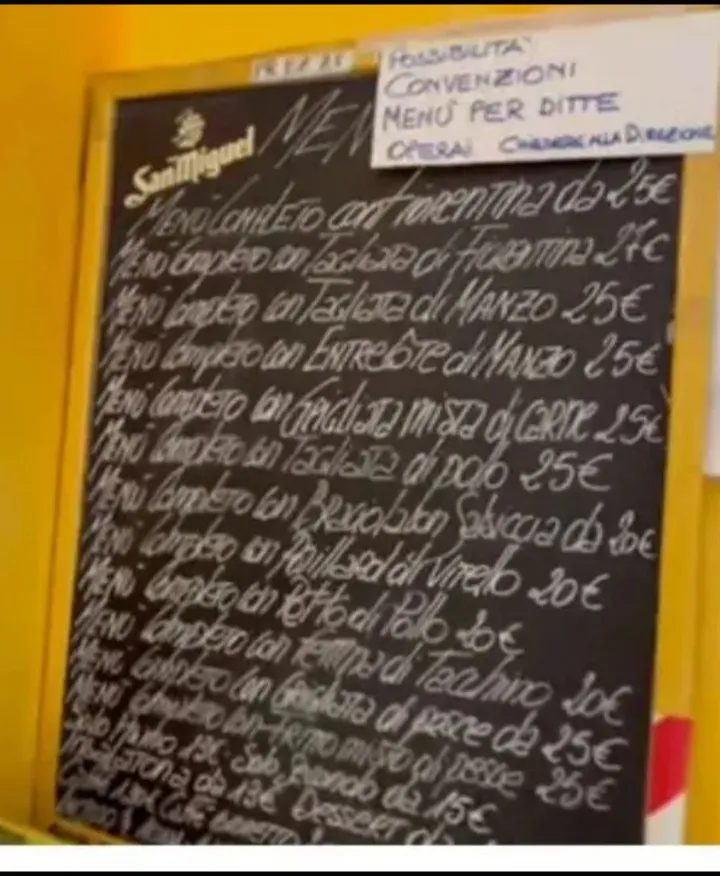 POSSIBILITA'
CONVENZIONI
MENÙ PER DITTE
OPERAI CHIEDERE ALLA DIREZIONE
San Miguel
MEN
MENÙ COMPLETO con Fiorentina da 25€
MENÙ Completo con Tagliata di Fiorentina 27€
MENÙ Completo con Tagliata di MANZO 25€
MENÙ Completo con ENTRECÔTE di MANZO 25€
MENÙ Completo con Grigliata mista di CARNE 25€
MENÙ Completo con Tagliata di pollo 25€
MENÙ Completo con Salsiccia da 20€
MENÙ Completo con Paillard di Vitello 20€
MENÙ Completo con Petto di Pollo 20€
MENÙ Completo con Fettina di Tacchino 20€
MENÙ Completo con Grigliata di pesce da 25€
MENÙ Completo con Fritto misto di pesce 25€
Solo Primo Solo Secondo da 15€
da 13€ Dessert da